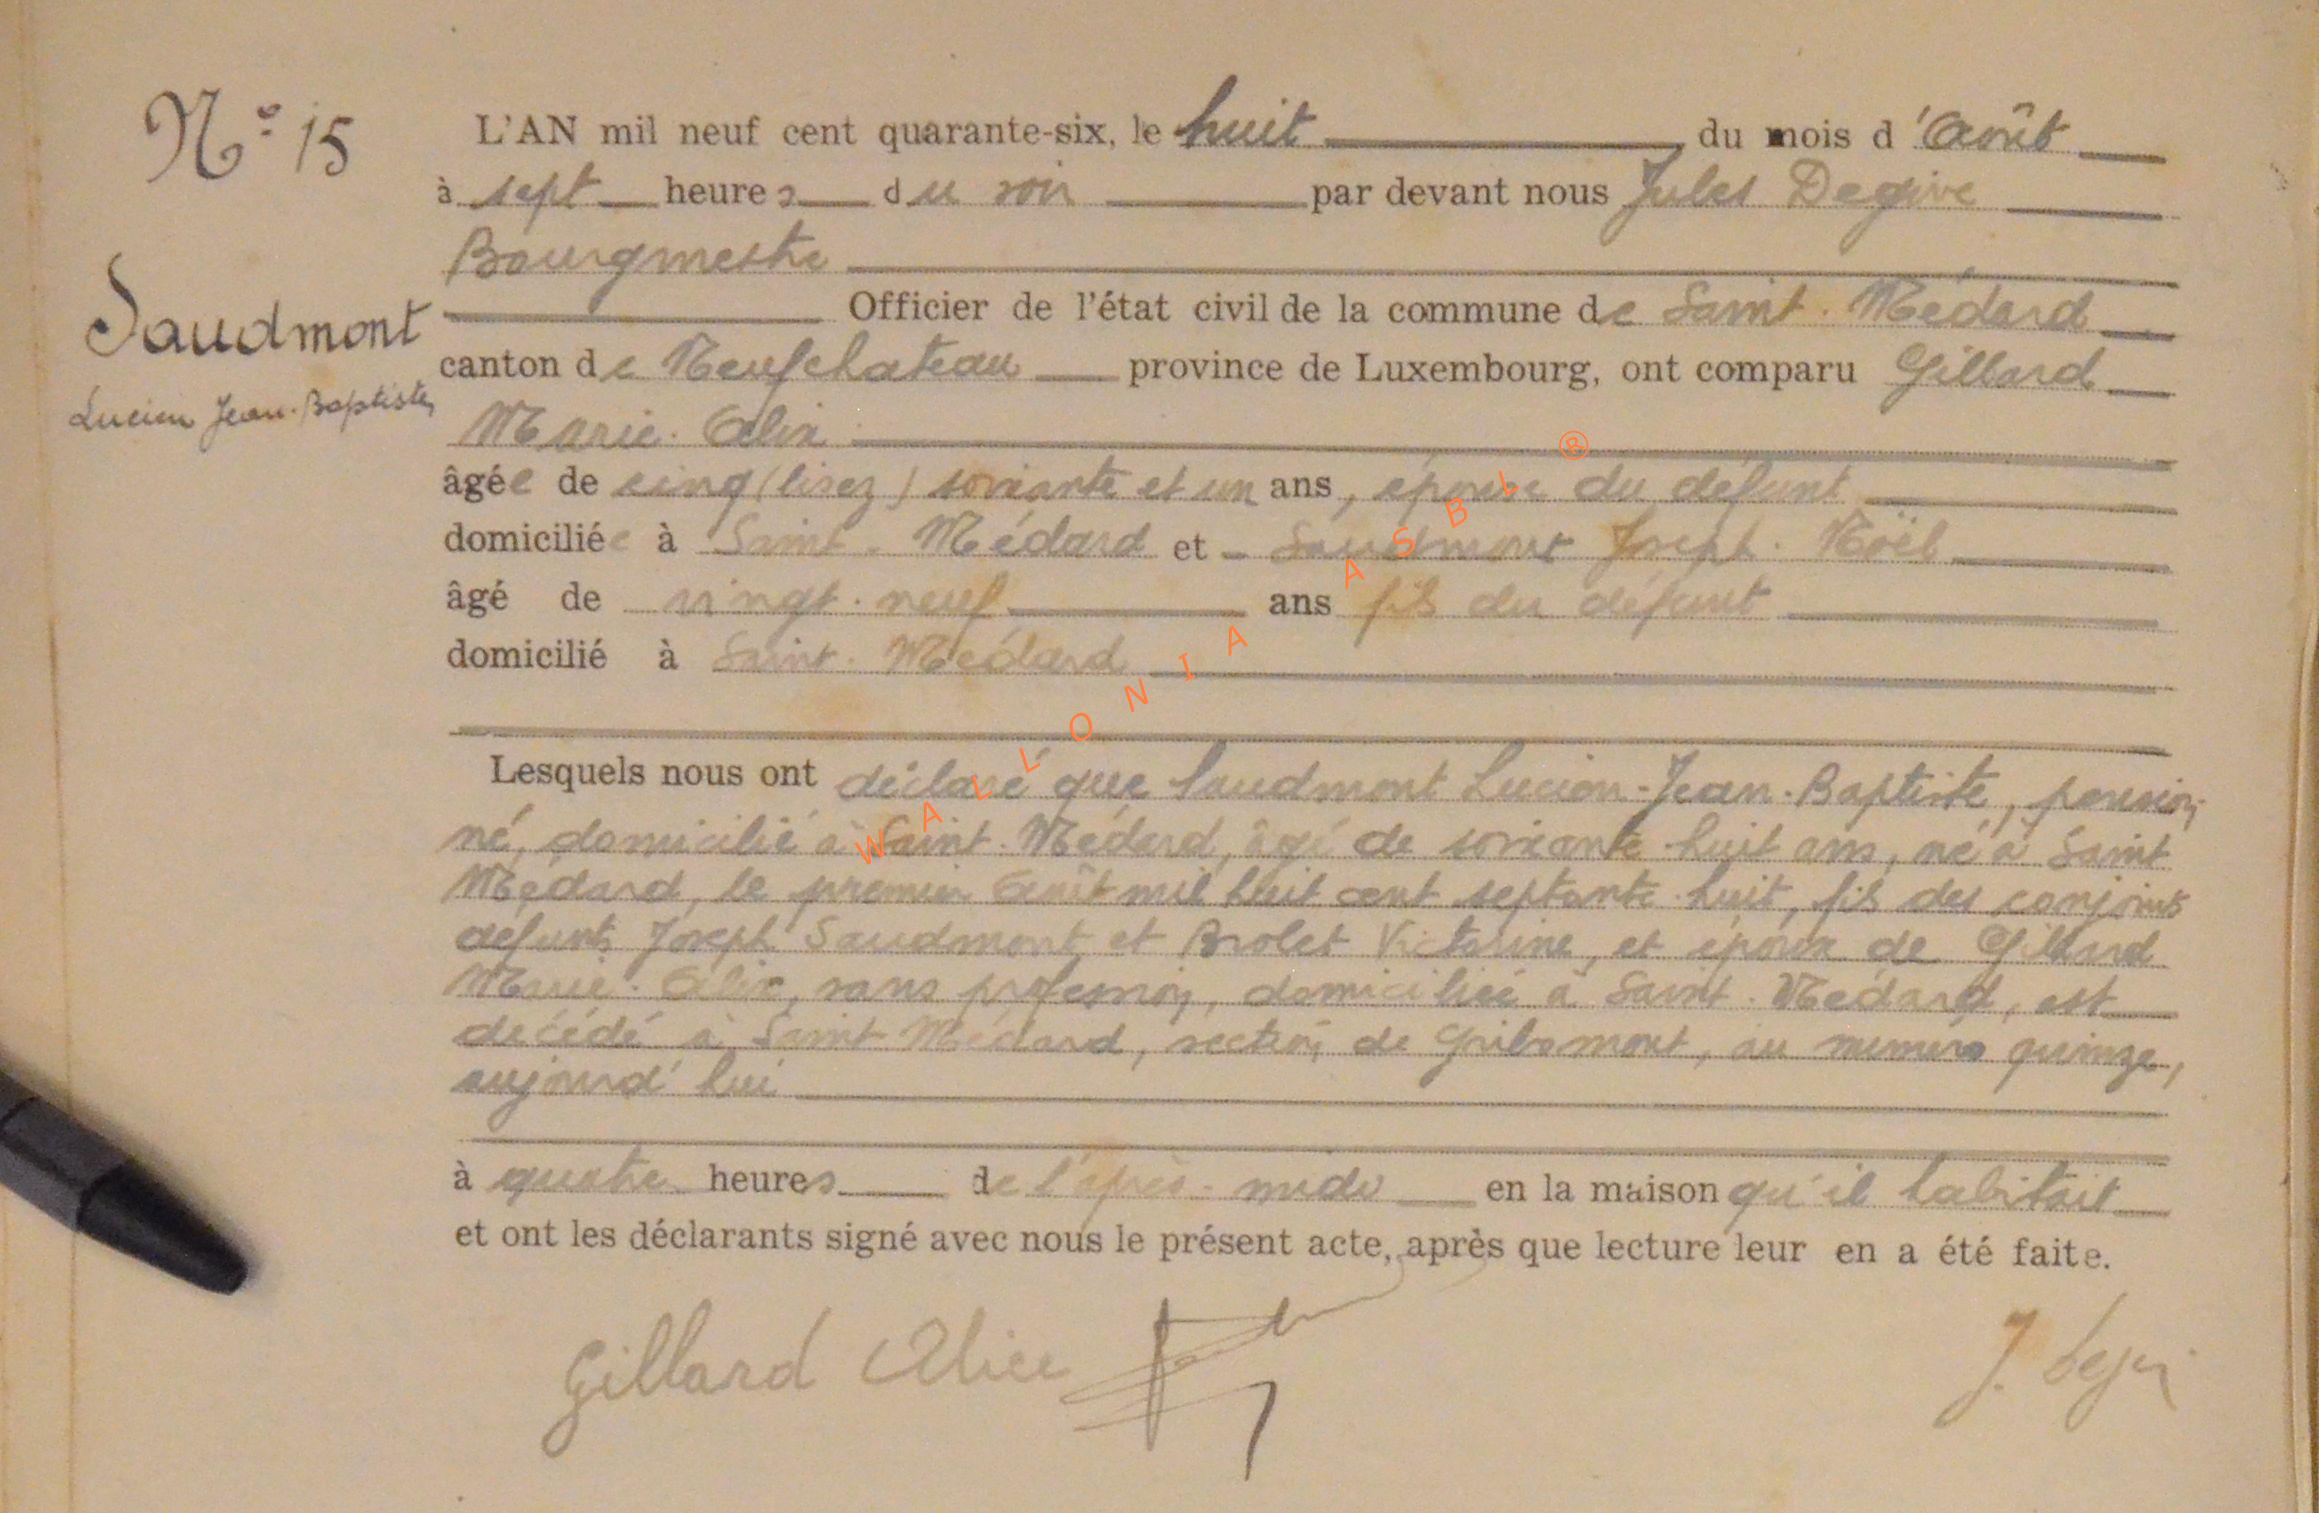 N° 15
L'AN mil neuf cent quarante-six, le huit du mois d'Août
à sept heures du soir par devant nous Jules Degive
Bourgmestre
Saudmont
Officier de l'état civil de la commune de Saint-Médard
Lucien Jean-Baptiste
canton de Neufchateau province de Luxembourg, ont comparu Gillard
Marie-Alix
âgée de cinq (lisez) soixante et un ans, épouse du défunt
domiciliée à Saint-Médard et Saudmont Joseph-Noël
âgé de vingt-neuf ans fils du défunt
domicilié à Saint-Médard
WALLONIA ASBL ®
Lesquels nous ont déclaré que Saudmont Lucien-Jean-Baptiste, pension
né, domicilié à Saint-Médard, âgé de soixante-huit ans, né à Saint
Médard, le premier Août mil huit cent septante-huit, fils des conjoints
défunts Joseph Saudmont et Brolet Victorine, et époux de Gillard
Marie-Alix, sans profession, domiciliée à Saint-Médard, est
décédé à Saint Médard, section de Gribomont, au numéro quinze,
aujourd'hui
à quatre heures de l'après-midi en la maison qu'il habitait
et ont les déclarants signé avec nous le présent acte, après que lecture leur en a été faite.
Gillard Alice